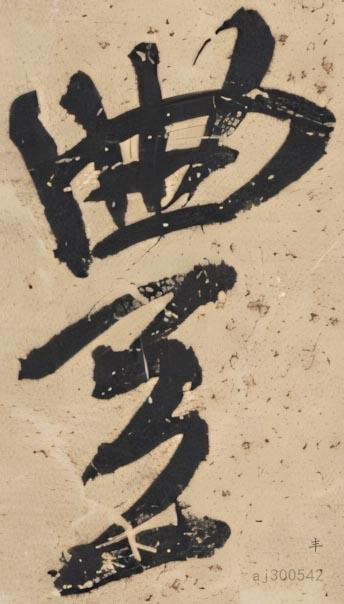 豊
丰
aj300542